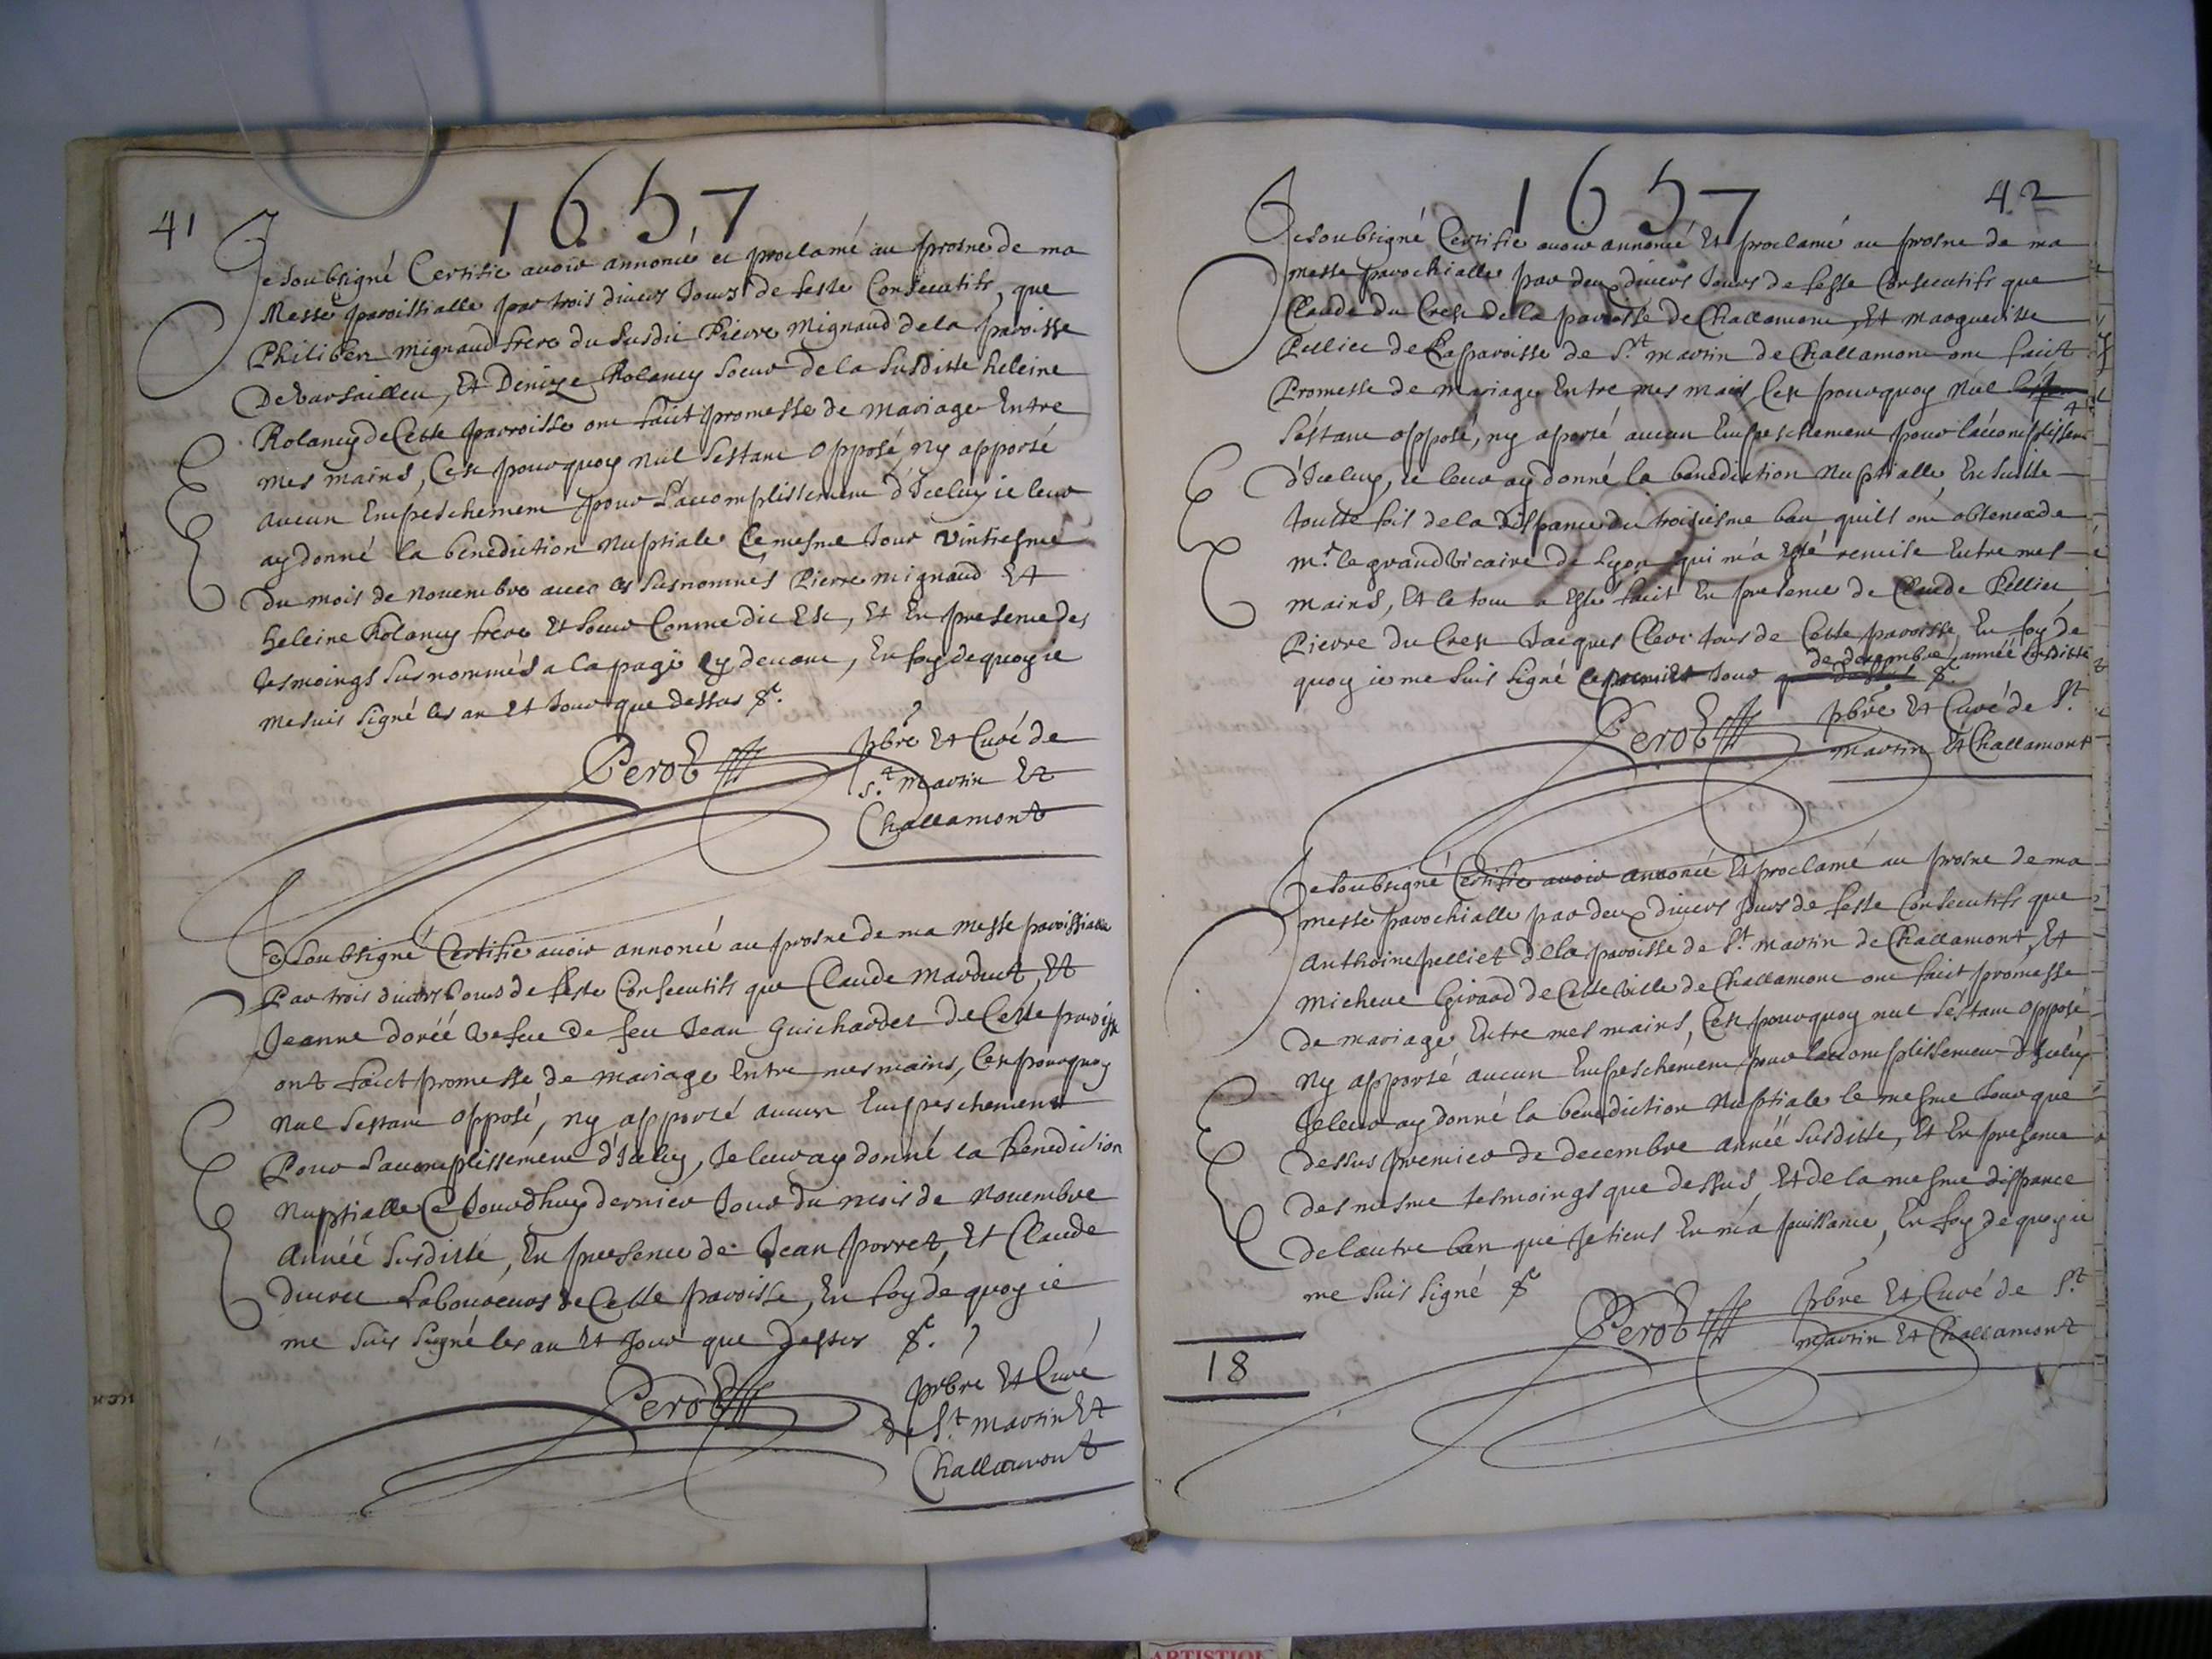 1657
41
Je soubsigné Certifie avoir annoncé et proclamé au prosne de ma
Messe paroissialle par trois divers Jours de feste Consecutifs, que
Philibert Mignaud frere du susdit Pierre Mignaud de la paroisse
De Varsailleu, Et Denize Rolancy soeur de la susditte heleine
Rolancy de Cette parroisse ont faict promesse de Mariage Entre
mes mains, Cest pourquoy nul sestant opposé ny apporté
aucun Empeschement pour Laccomplissement d'Iceluy ie leur
ay donné la benediction Nuptiale Ce mesme Jour vintiesme
Du mois de Novembre avec les susnommés Pierre Mignaud Et
heleine Rolancy frere Et soeur Comme dit Est, Et En presence des
tesmoings susnommés a la page cy devant, En foy de quoy ie
me suis signé les an Et Jour que dessus &c.
Perot
pbre Et Curé de
St. Martin Et
Challamont
Je soubsigné Certifie avoir annoncé au prosne de ma Messe paroissialle
Par trois divers Jours de feste Consecutifs que Claude Marduel, Et
Jeanne dorée vefue de feu Jean Guichardet de Cette paroisse
ont faict promesse de mariage Entre mes mains, Cest pourquoy
Nul sestant opposé, ny apporté aucun Empeschement
Pour Laccomplissement d'Iceluy, Je leur ay donné la benediction
Nuptialle Ce Jourdhuy dernier Jour du mois de Novembre
Année susditte, En presence de Jean porret, Et Claude
ducret Laboureurs de Cette paroisse, En foy de quoy ie
me suis signé les an Et Jour que dessus &c.
Perot
prbre Et Curé
de St Martin Et
Challamont
1657
42
Je soubsigné Certifie avoir annoncé Et proclamé au prosne de ma
messe parochialle par deux divers Jours de feste Consecutifs que
Claude du Crest de la paroisse de Challamont, Et Margueritte
Pelliet de La paroisse de St. Martin de Challamont ont faict
Promesse de Mariage Entre mes mains Cest pourquoy Nul
s'éstant opposé, ny aporté aucun Empeschement pour láccomplissemt
d'Iceluy, ie leur ay donné la benediction Nuptialle, En suitte
toutte fois de la dispance du troisiesme ban quils ont obtenu de
Mr. le grand Vicaire de Lyon qui m'a Esté remise Entre mes
mains, Et le tout a Esté faict En presence de Claude Pelliet
Pierre du Crest Jacques Clerc tous de Cette paroisse, En foy de
quoy ie me suis signé le premier Jour de decembre année susditte &c.
Perot
pbre Et Curé de St.
Martin Et Challamont
Je soubsigné Certifie avoir annoncé Et proclamé au prosne de ma
messe parochialle par deux divers Jours de feste Consecutifs que
Anthoine pelliet de la paroisse de St. Martin de Challamont, Et
Micheue Girard de Cette Ville de Challamont ont faict promesse
de mariage Entre mes mains, Cest pourquoy nul séstant opposé
Ny apporté aucun Empeschement pour laccomplissement d'Iceluy
Je leur ay donné la benediction Nuptiale le mesme Jour que
dessus premier de decembre année susditte, Et En presence
des mesme tesmoings que dessus, Et de la mesme dispance
de lautre ban que Je tiens En ma puissance, En foy de quoy ie
me suis signé &c
Perot
pbre Et Curé de St.
Martin Et Challamont
18